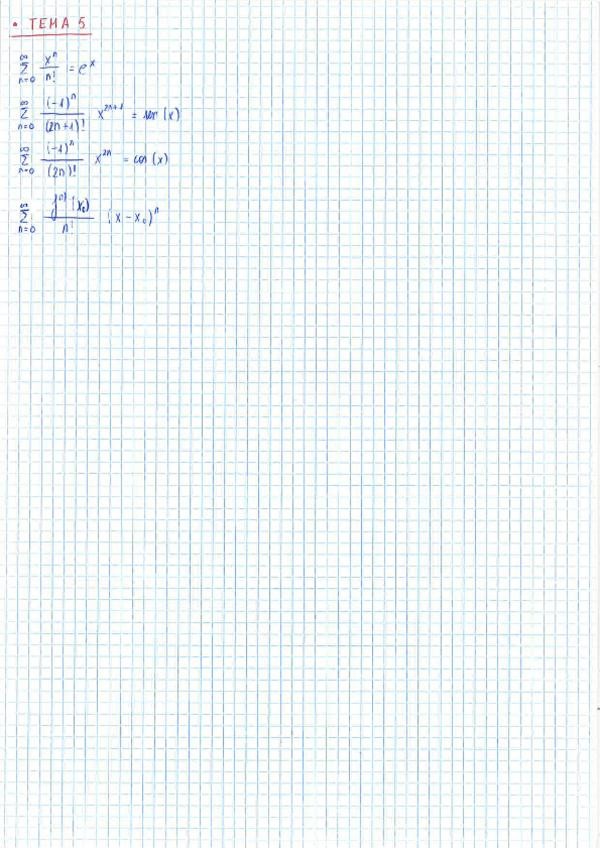 • TEMA 5
∑_{n=0}^{∞} x^n / n! = e^x
∑_{n=0}^{∞} (-1)^n / (2n+1)! x^{2n+1} = sen (x)
∑_{n=0}^{∞} (-1)^n / (2n)! x^{2n} = cos (x)
∑_{n=0}^{∞} f^{n)} (x₀) / n! (x - x₀)^n